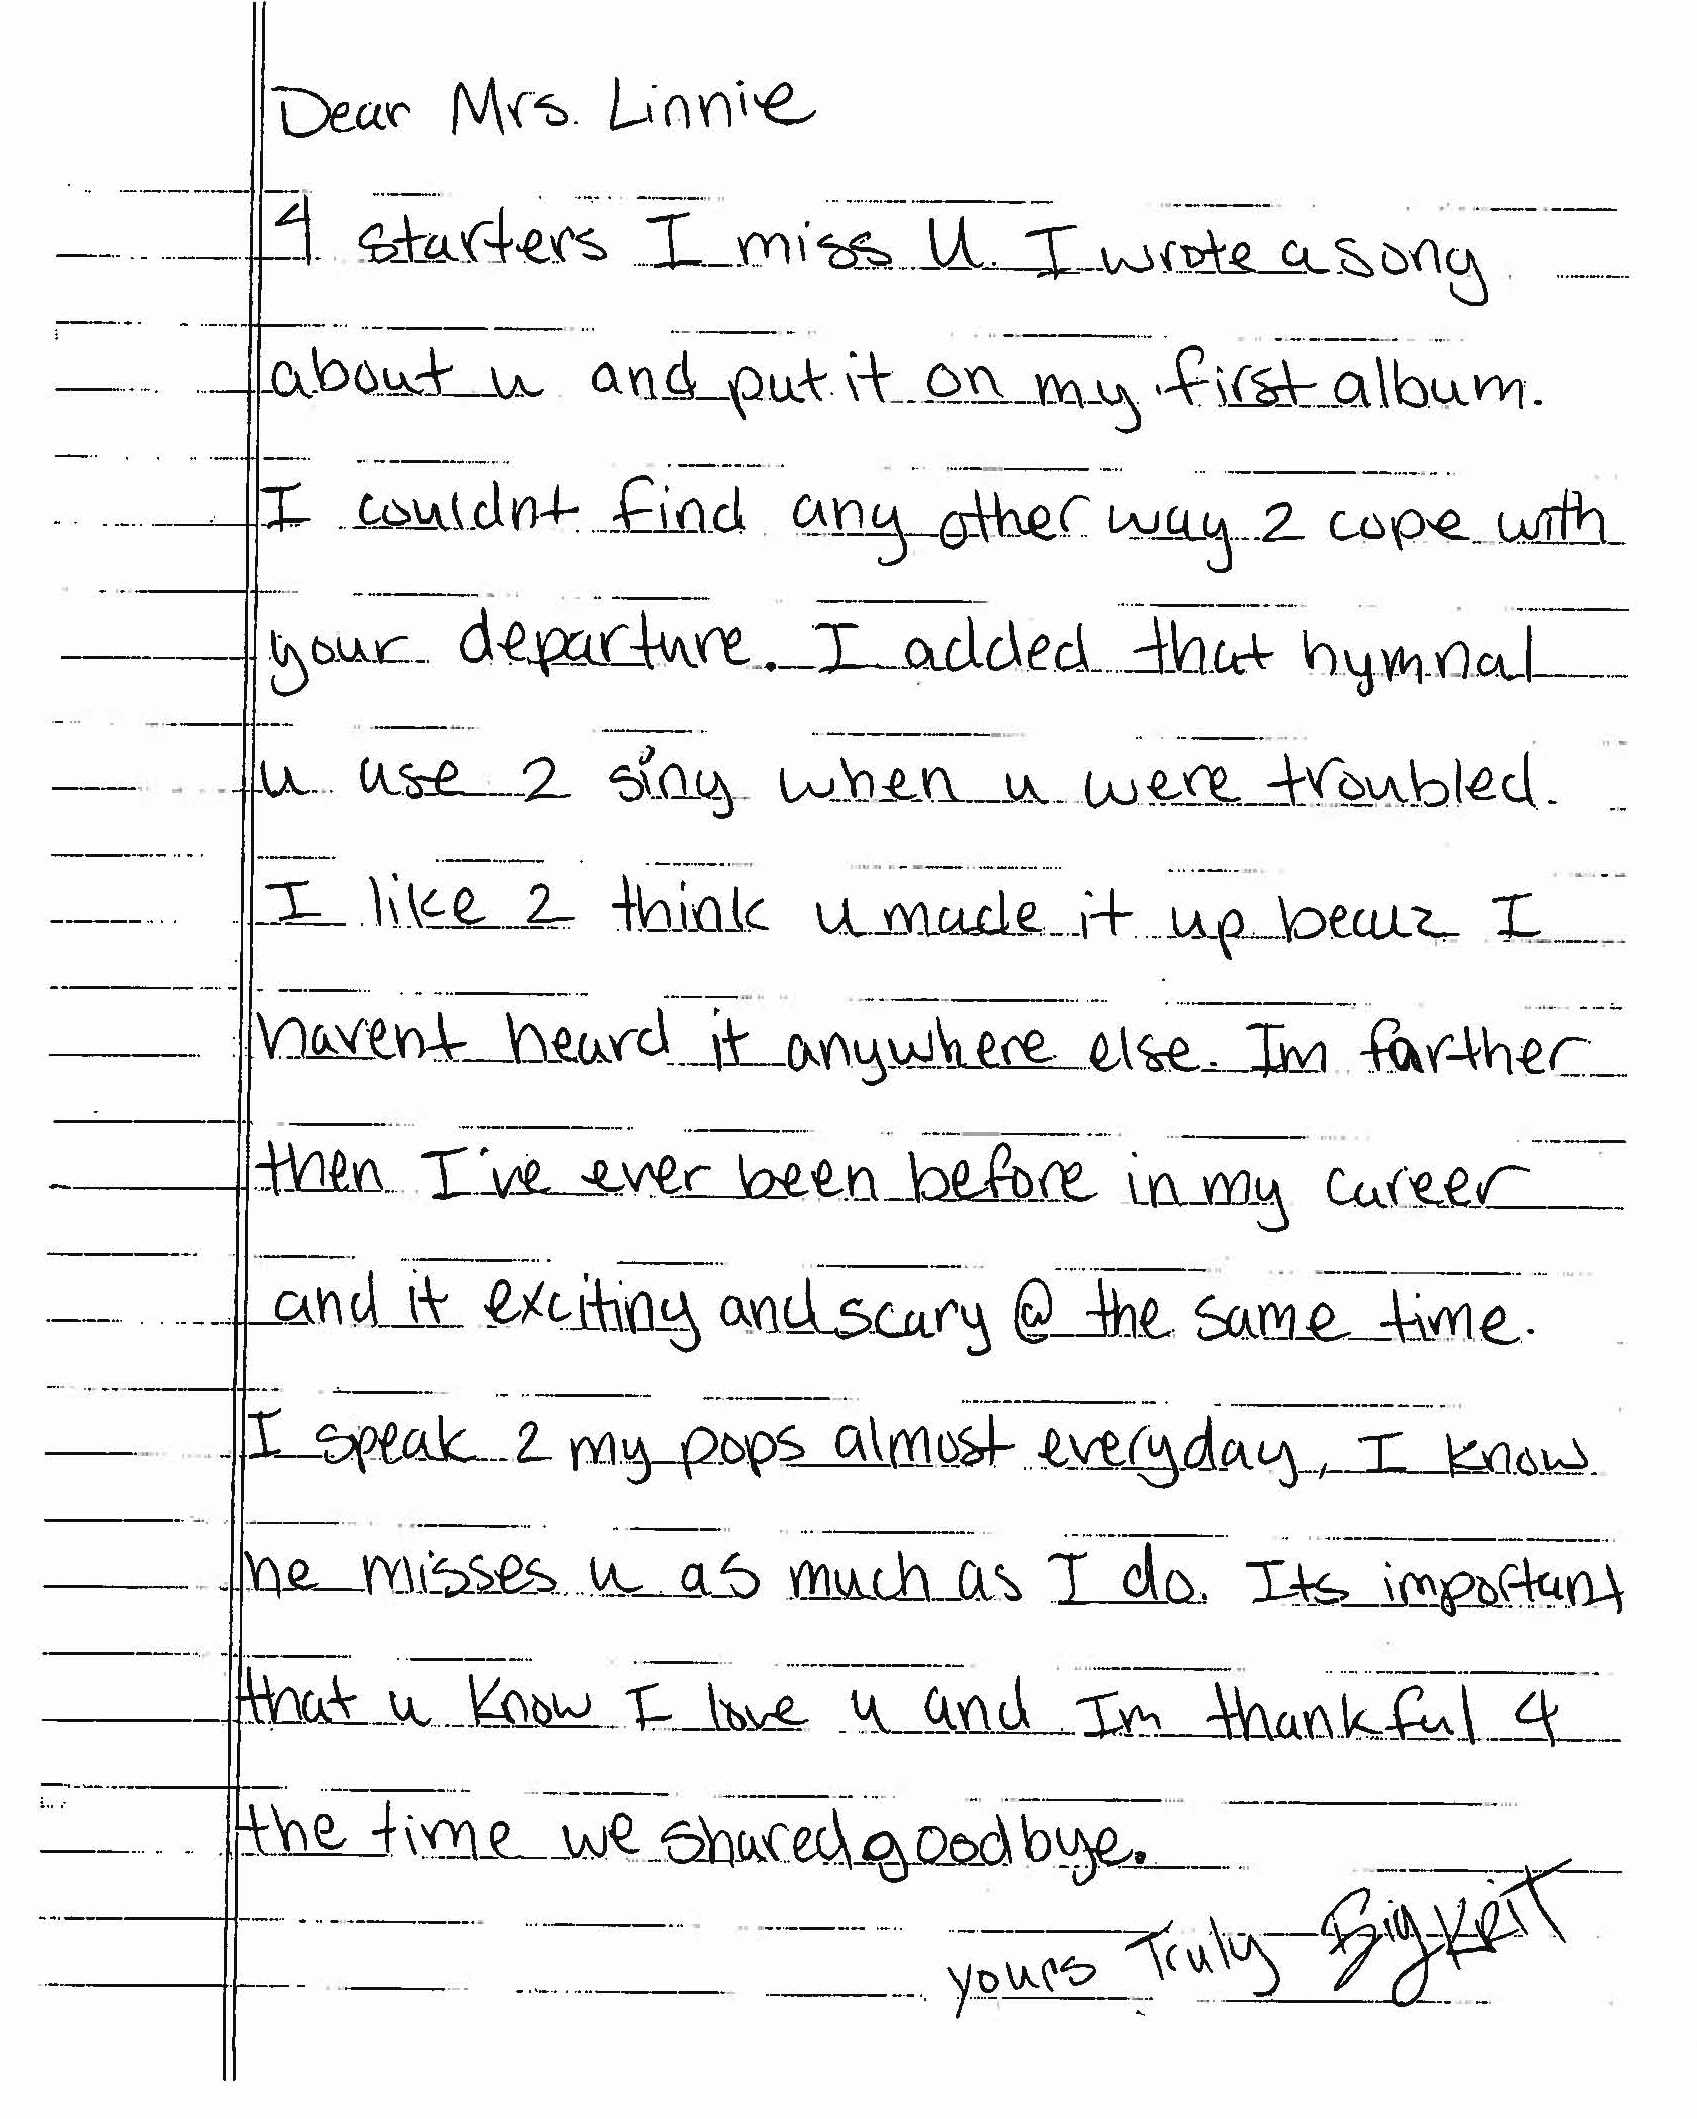 Dear Mrs. Linnie
4 starters I miss U. I wrote a song
about u and put it on my first album.
I couldnt find any other way 2 cope with
your departure. I added that hymnal
u use 2 sing when u were troubled.
I like 2 think u made it up becuz I
havent heard it anywhere else. Im farther
then I've ever been before in my career
and it exciting and scary @ the same time.
I speak 2 my pops almost everyday, I know
he misses u as much as I do. Its important
that u know I love u and Im thankful 4
the time we shared goodbye.
yours Truly Big KRIT